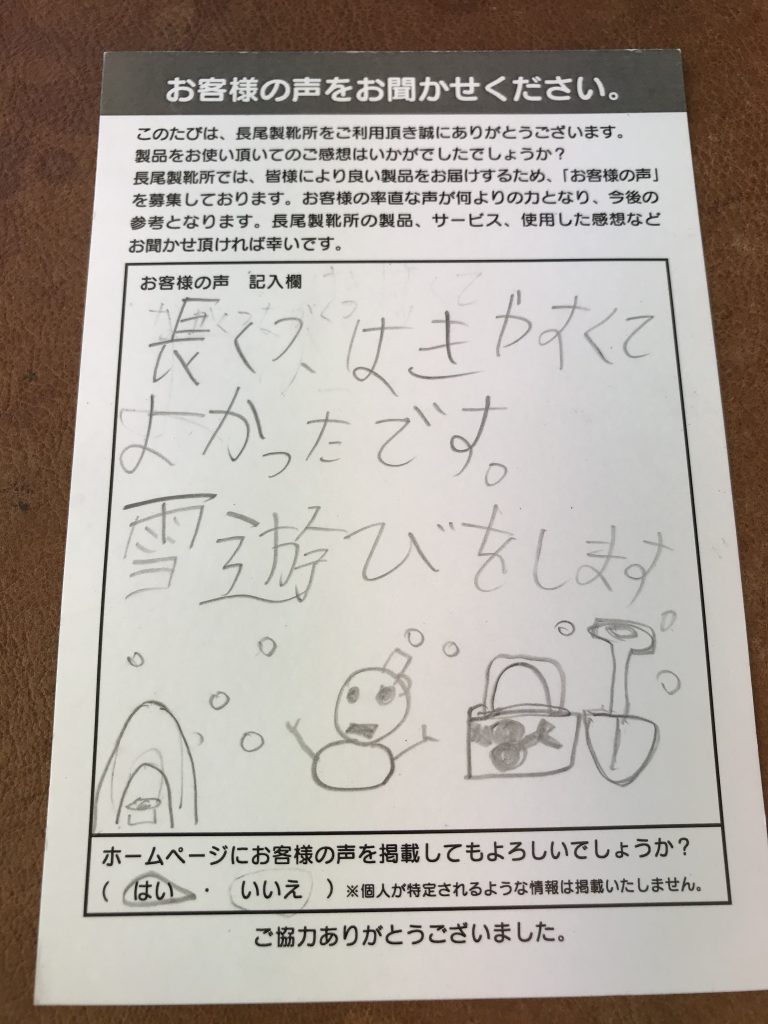 お客様の声をお聞かせください。
このたびは、長尾製靴所をご利用頂き誠にありがとうございます。
製品をお使い頂いてのご感想はいかがでしたでしょうか？
長尾製靴所では、皆様により良い製品をお届けするため、「お客様の声」
を募集しております。お客様の率直な声が何よりの力となり、今後の
参考となります。長尾製靴所の製品、サービス、使用した感想など
お聞かせ頂ければ幸いです。
お客様の声　記入欄
長くつ、はきやすくて
よかったです。
雪遊びをします
ホームページにお客様の声を掲載してもよろしいでしょうか？
（ はい ・ いいえ ）※個人が特定されるような情報は掲載いたしません。
ご協力ありがとうございました。